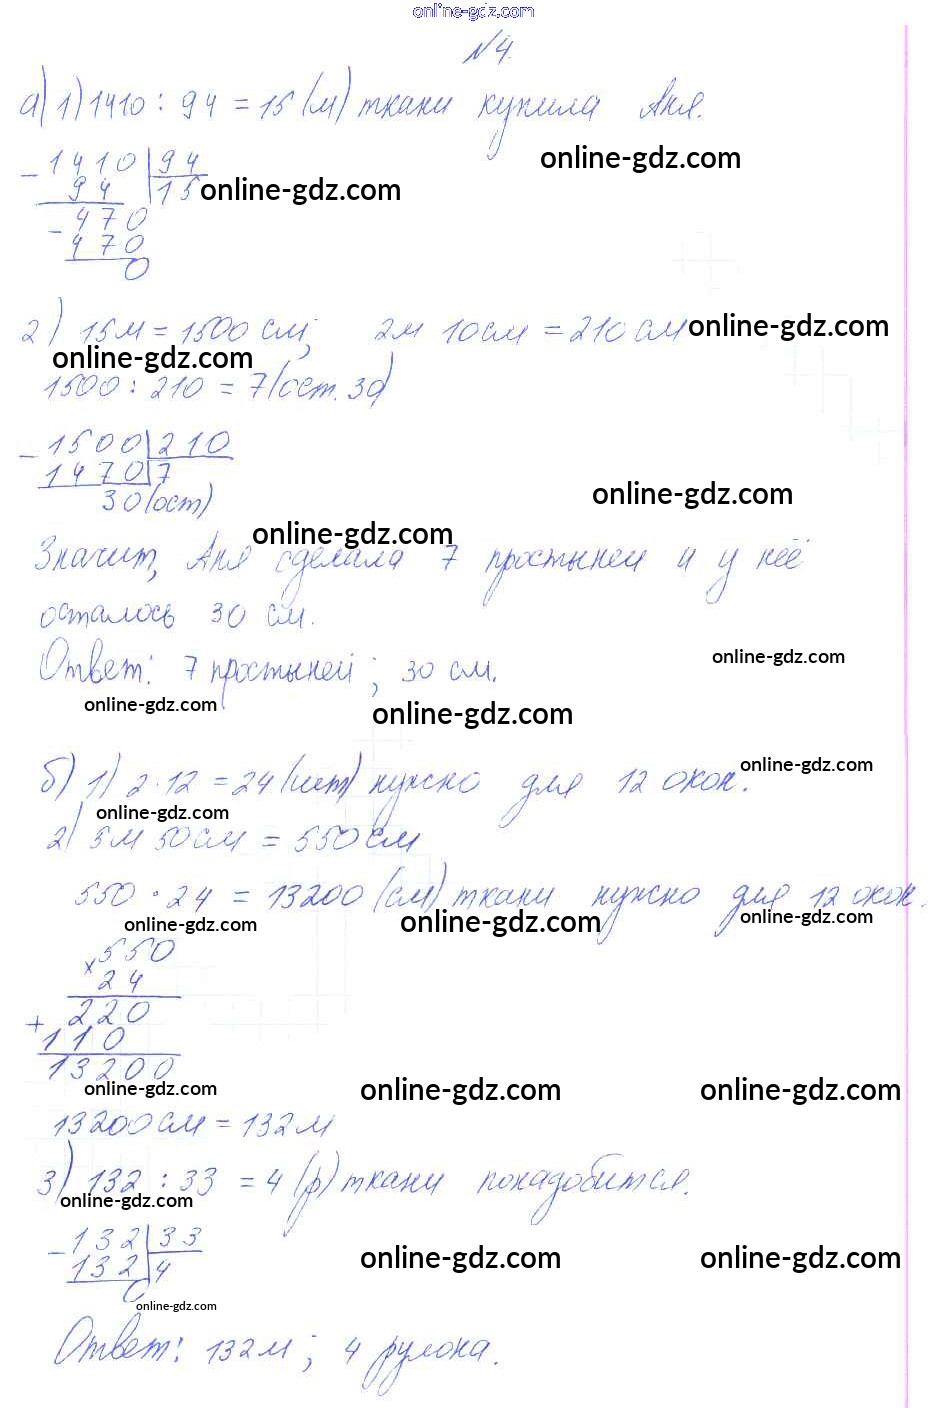 online-gdz.com
№4.
а) 1) 1410 : 94 = 15 (м) ткани купила Аня.
online-gdz.com
- 1410 | 94
94 | 15 online-gdz.com
- 470
470
0
2) 15м = 1500 см; 2м 10см = 210 см online-gdz.com
online-gdz.com
1500 : 210 = 7 (ост. 30)
- 1500 | 210
1470 | 7
30 (ост)
online-gdz.com
online-gdz.com
Значит, Аня сделала 7 простыней и у неё
осталось 30 см.
Ответ: 7 простыней; 30 см.
online-gdz.com
online-gdz.com
online-gdz.com
online-gdz.com
б) 1) 2 · 12 = 24 (шт) нужно для 12 окон.
online-gdz.com
2) 5м 50 см = 550 см
550 · 24 = 13200 (см) ткани нужно для 12 окон.
online-gdz.com online-gdz.com online-gdz.com
× 550
24
+ 220
110
13200
online-gdz.com online-gdz.com online-gdz.com
13200 см = 132 м
3) 132 : 33 = 4 (р) ткани понадобится.
online-gdz.com
- 132 | 33
132 | 4
0
online-gdz.com online-gdz.com
online-gdz.com
Ответ: 132 м; 4 рулона.